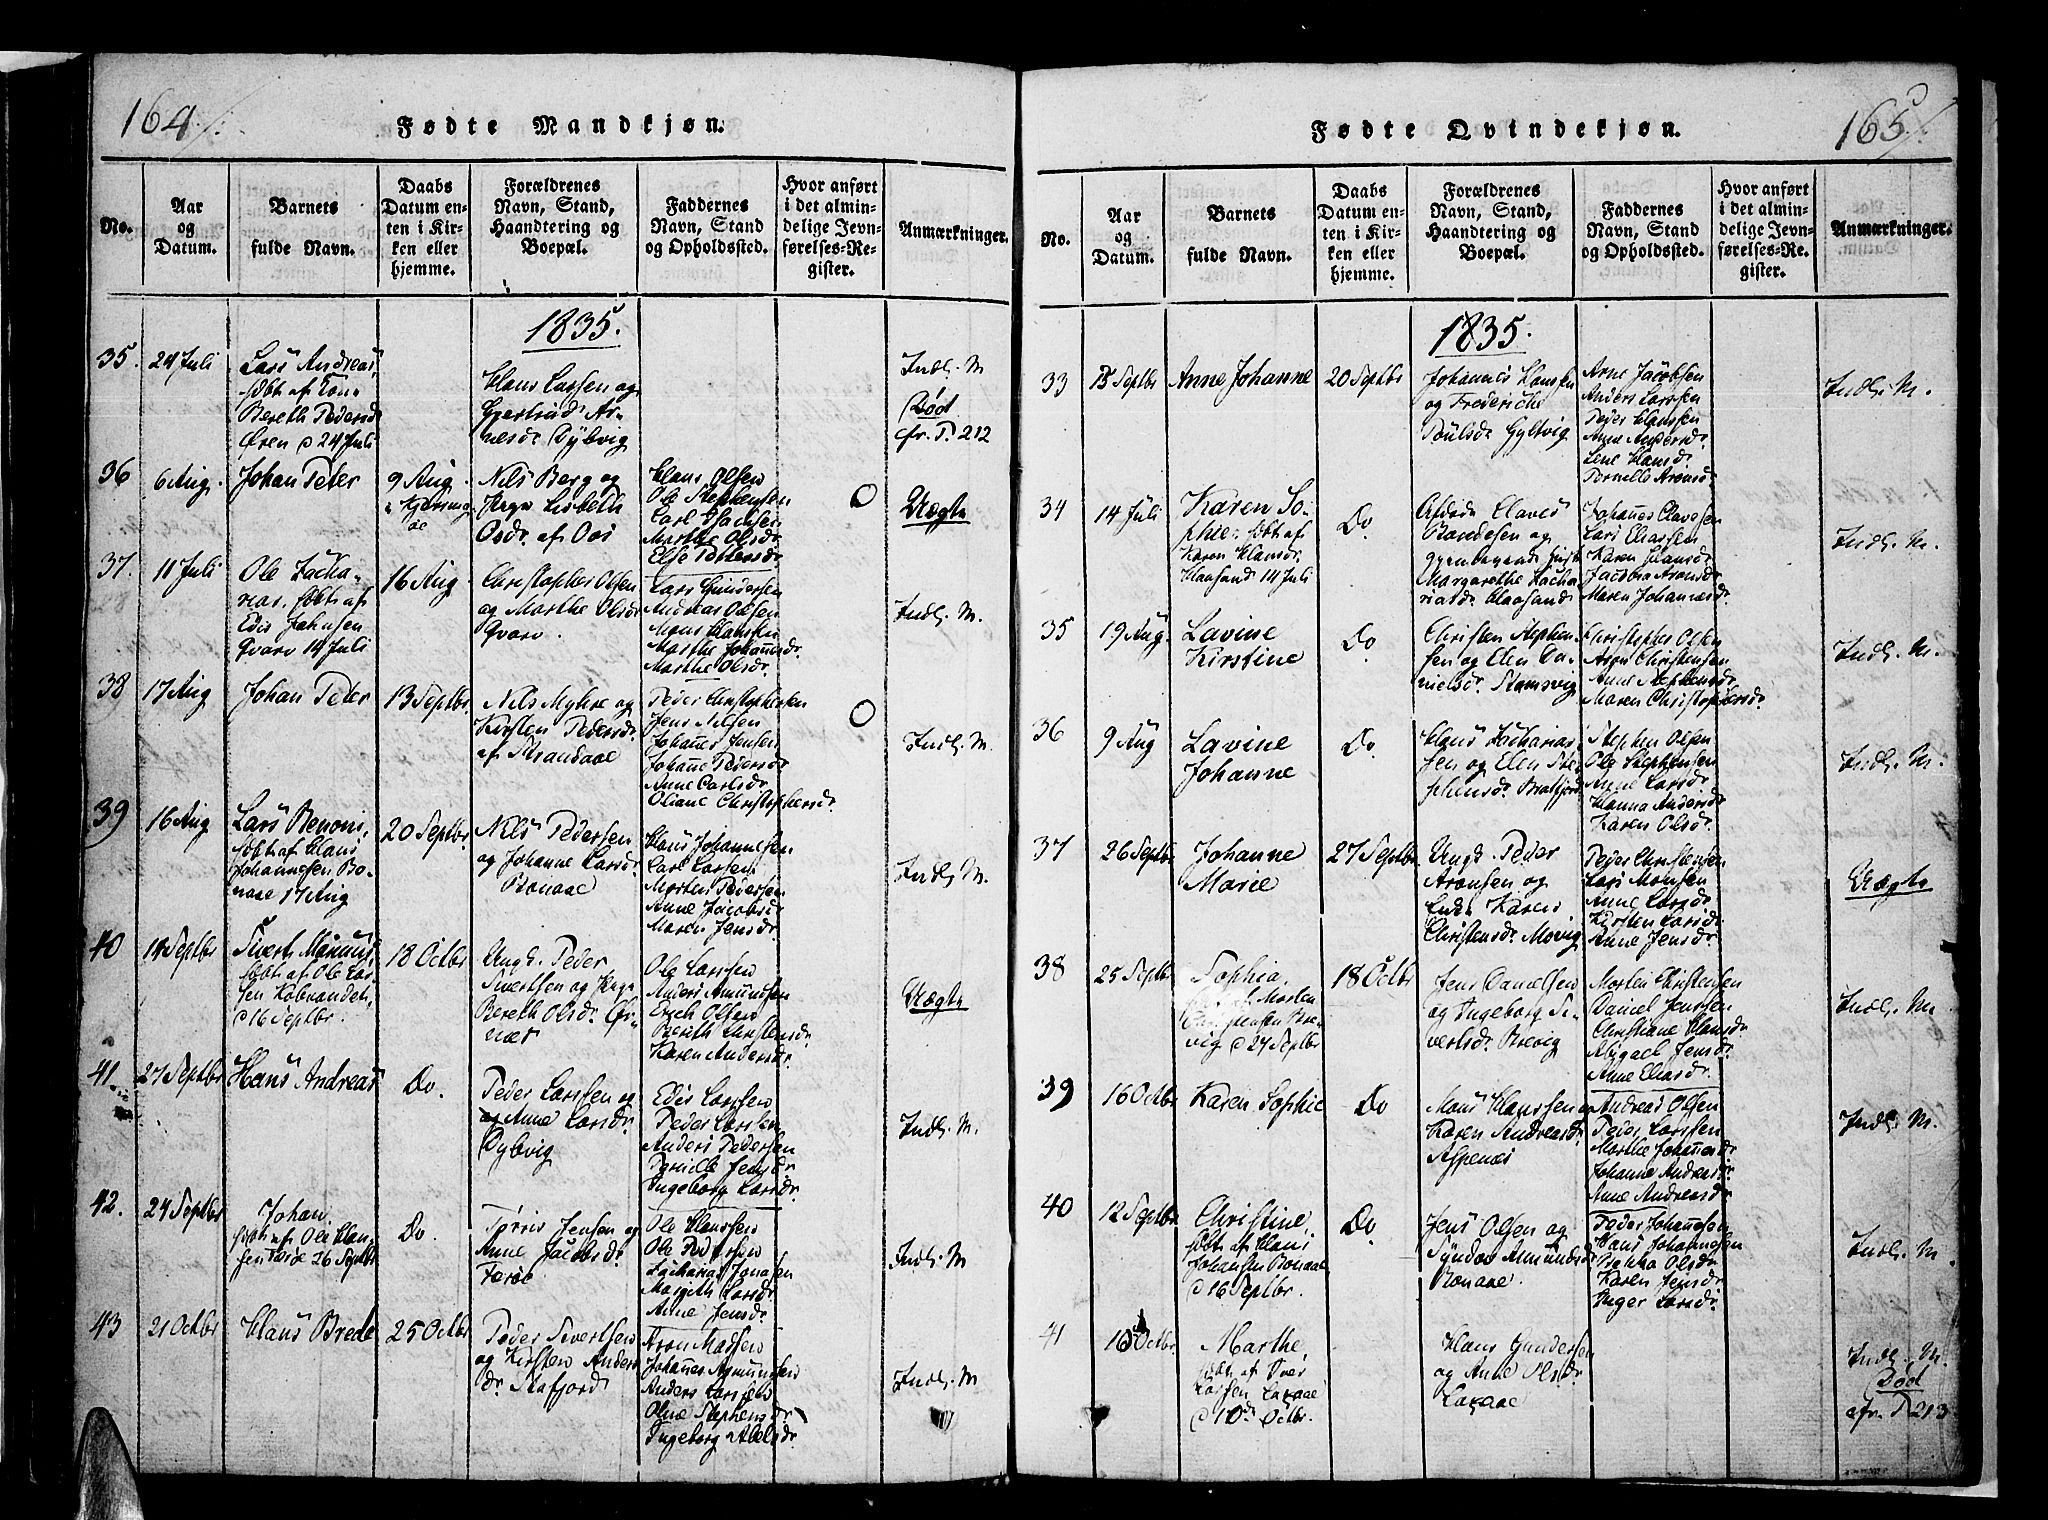 164
Fødte Mandkjøn.
No.
Aar
og
Datum.
Barnets
fulde Navn.
Daabs
Datum en-
ten i Kir-
ken eller
hjemme.
Forældrenes
Navn, Stand,
Haandtering og
Boepæl.
Faddernes
Navn, Stand
og Opholdssted.
Hvor anført
i det almin-
delige Jevn-
førelses-Re-
gister.
Anmærkninger.
1835.
35.
24 Juli
Lars Andreas,
døbt af
Bereth Pedersd
Øren d 24 Juli
Hans Larsen og
Gjertrud Ar-
nesdr Dybvig
Indl. M
Død
cfr. P. 212
36
6 Aug.
Johan Peter
9 Aug.
i Kjerring-
øe
Nils Berg og
Pige Lisbeth
Osdr. af Oos
Hans Olsen
Ole Stephensen
Carl Isachsen
Marthe Olsdr
Else Pedersdr
Uægte
37.
11 Juli
Ole Zacha-
rias. døbt af
Edis Johnsen
Qvarv 14 Juli
16 Aug
Christopher Olsen
og Marthe Olsdr
Qvarv.
Lars Gundersen
Andreas Olsen
Mons Hansen
Marthe Johannesdr.
Marthe Olsdr.
Indl. M.
38
17 Aug
Johan Peder
13 Septbr
Nils Myhre og
Kirsten Pedersdr.
af Strandaae
Peder Christophersen
Jens Nilsen
Johannes Jensen
Johanne Pedersdr
Anne Carlsdr.
Oliane Christophersdr.
Indl. M.
39
16 Aug
Lars Benoni,
døbt af Hans
Johannesen Bo-
naae 17 Aug
20 Septbr
Nils Pedersen
og Johanne Larsdr.
Bonaae
Hans Johannesen
Carl Larsen
Morten Pedersen
Anne Jacobsdr
Maren Jensdr
Indl. M.
40
14 Septbr
Sivert Monnus,
døbt af Ole Lar-
sen Kobvandet,
d 16 Septbr.
18 Octbr
Ungk. Peder
Sivertsen og Pige
Bereth Olsdr. Ør-
næs
Ole Larsen
Anders Amundsen
Erich Olsen
Bereth Christensdr.
Karen Andersdr.
Uægte
41.
27 Septbr
Hans Andreas
Do.
Peder Larsen og
Anne Larsdr.
Dybvig
Edis Larsen
Peder Larsen
Anders Pedersen
Pernille Jensdr
Ingeborg Larsdr.
Indl. M.
42.
24 Septbr
Johan.
døbt af Ole Han-
sen Færø 26 Septbr
Do.
Tørris Jensen og
Anne Jacobsdr.
Færøe
Ole Hansen
Ole Pedersen
Zacharias Jonasen
Margith Larsdr.
Anne Jensdr
Indl. M
43
21 Octbr
Hans Brede
25 Octbr
Peder Sivertsen
og Kirsten Anders
dr. Stafjord
Aron Madsen
Johannes Asmundsen
Anders Larsen
Oline Stephensdr.
Ingeborg Abelsdr.
Indl. M
165
Fødte Qvindekjøn.
No.
Aar
og
Datum.
Barnets
fulde Navn.
Daabs
Datum en-
ten i Kir-
ken eller
hjemme.
Forældrenes
Navn, Stand,
Haandtering og
Boepæl.
Faddernes
Navn, Stand
og Opholdssted.
Hvor anført
i det almin-
delige Jevn-
førelses-Re-
gister.
Anmærkninger.
1835.
33
15 Septbr
Anne Johanne
20 Septbr
Johannes Hansen
og Frederiche
Poulsdr Gyltvig
Arne Jacobsen
Anders Larsen
Peder Hansen
Anne Andersdr.
Lene Hansdr.
Pernille Aronsdr
Indl. M.
34
14 Juli
Karen So-
phie. døbt af
Karen Hansdr.
Haasand 14 Juli
Do.
Afdøde Claves
Bendesen og
gjenlevende
Margarethe Zacha-
riasdr. Haasand
Johannes Clavesen
Lars Eliassen
Karen Hansdr
Jacobia Aronsdr
Maren Johannesdr.
Indl. M.
35
19 Aug.
Lavine
Kirstine
Do
Christen Stephen-
sen og Elen Da-
nielsdr. Stamsvig
Christopher Olsen
Aron Christensen
Anne Stephensdr.
Maren Christophersdr.
Indl. M.
36
9 Aug
Lavine
Johanne
Do
Hans Zacharias-
sen og Elen Ste-
phensdr. Bratfjord
Stephen Olsen
Ole Stephensen
Anne Larsdr.
Hanna Andersdr
Karen Olsdr.
Indl. M.
37
26 Septbr
Johanne
Marie
27 Septbr
Ungk. Peder
Aronsen og
Enke Karen
Christensdr. Movig
Peder Christensen
Lars Monsen
Anne Larsdr
Kirsten Larsdr.
Anne Jensdr
Uægte
38
25 Septbr
Sophia,
Morten
Christensen Bre-
vig d 27 Septbr
18 Octbr
Jens Danielsen
og Ingeborg Si-
vertsdr. Brevig
Morten Christensen
Daniel Jensen
Christiane Hansdr
Abigael Jensdr.
Anne Eliasdr.
Indl. M.
39
16 Octbr
Karen Sophie
Do
Mons Hansen og
Karen Andreasdr.
Aspenæs
Andreas Olsen
Peder Larsen
Marthe Johannesdr
Johanne Andreasdr
Anne Andreasdr
Indl. M.
40
12 Septbr
Christine,
døbt af Hans
Johansen Bonaae
d 16 Septbr.
Do
Jens Olsen og
Syndov Amundsdr
Bonaae
Peder Johannesen
Hans Johannesen
Rebekka Olsdr
Karen Jensdr
Inger Larsdr.
Indl. M
41
10 Octbr.
Marthe,
døbt af Iver
Larsen Laxaae
d 10de Octbr.
Hans Gundersen
og Anne Olsdr.
Laxaae
Indl. M.
Død
cfr. P. 213